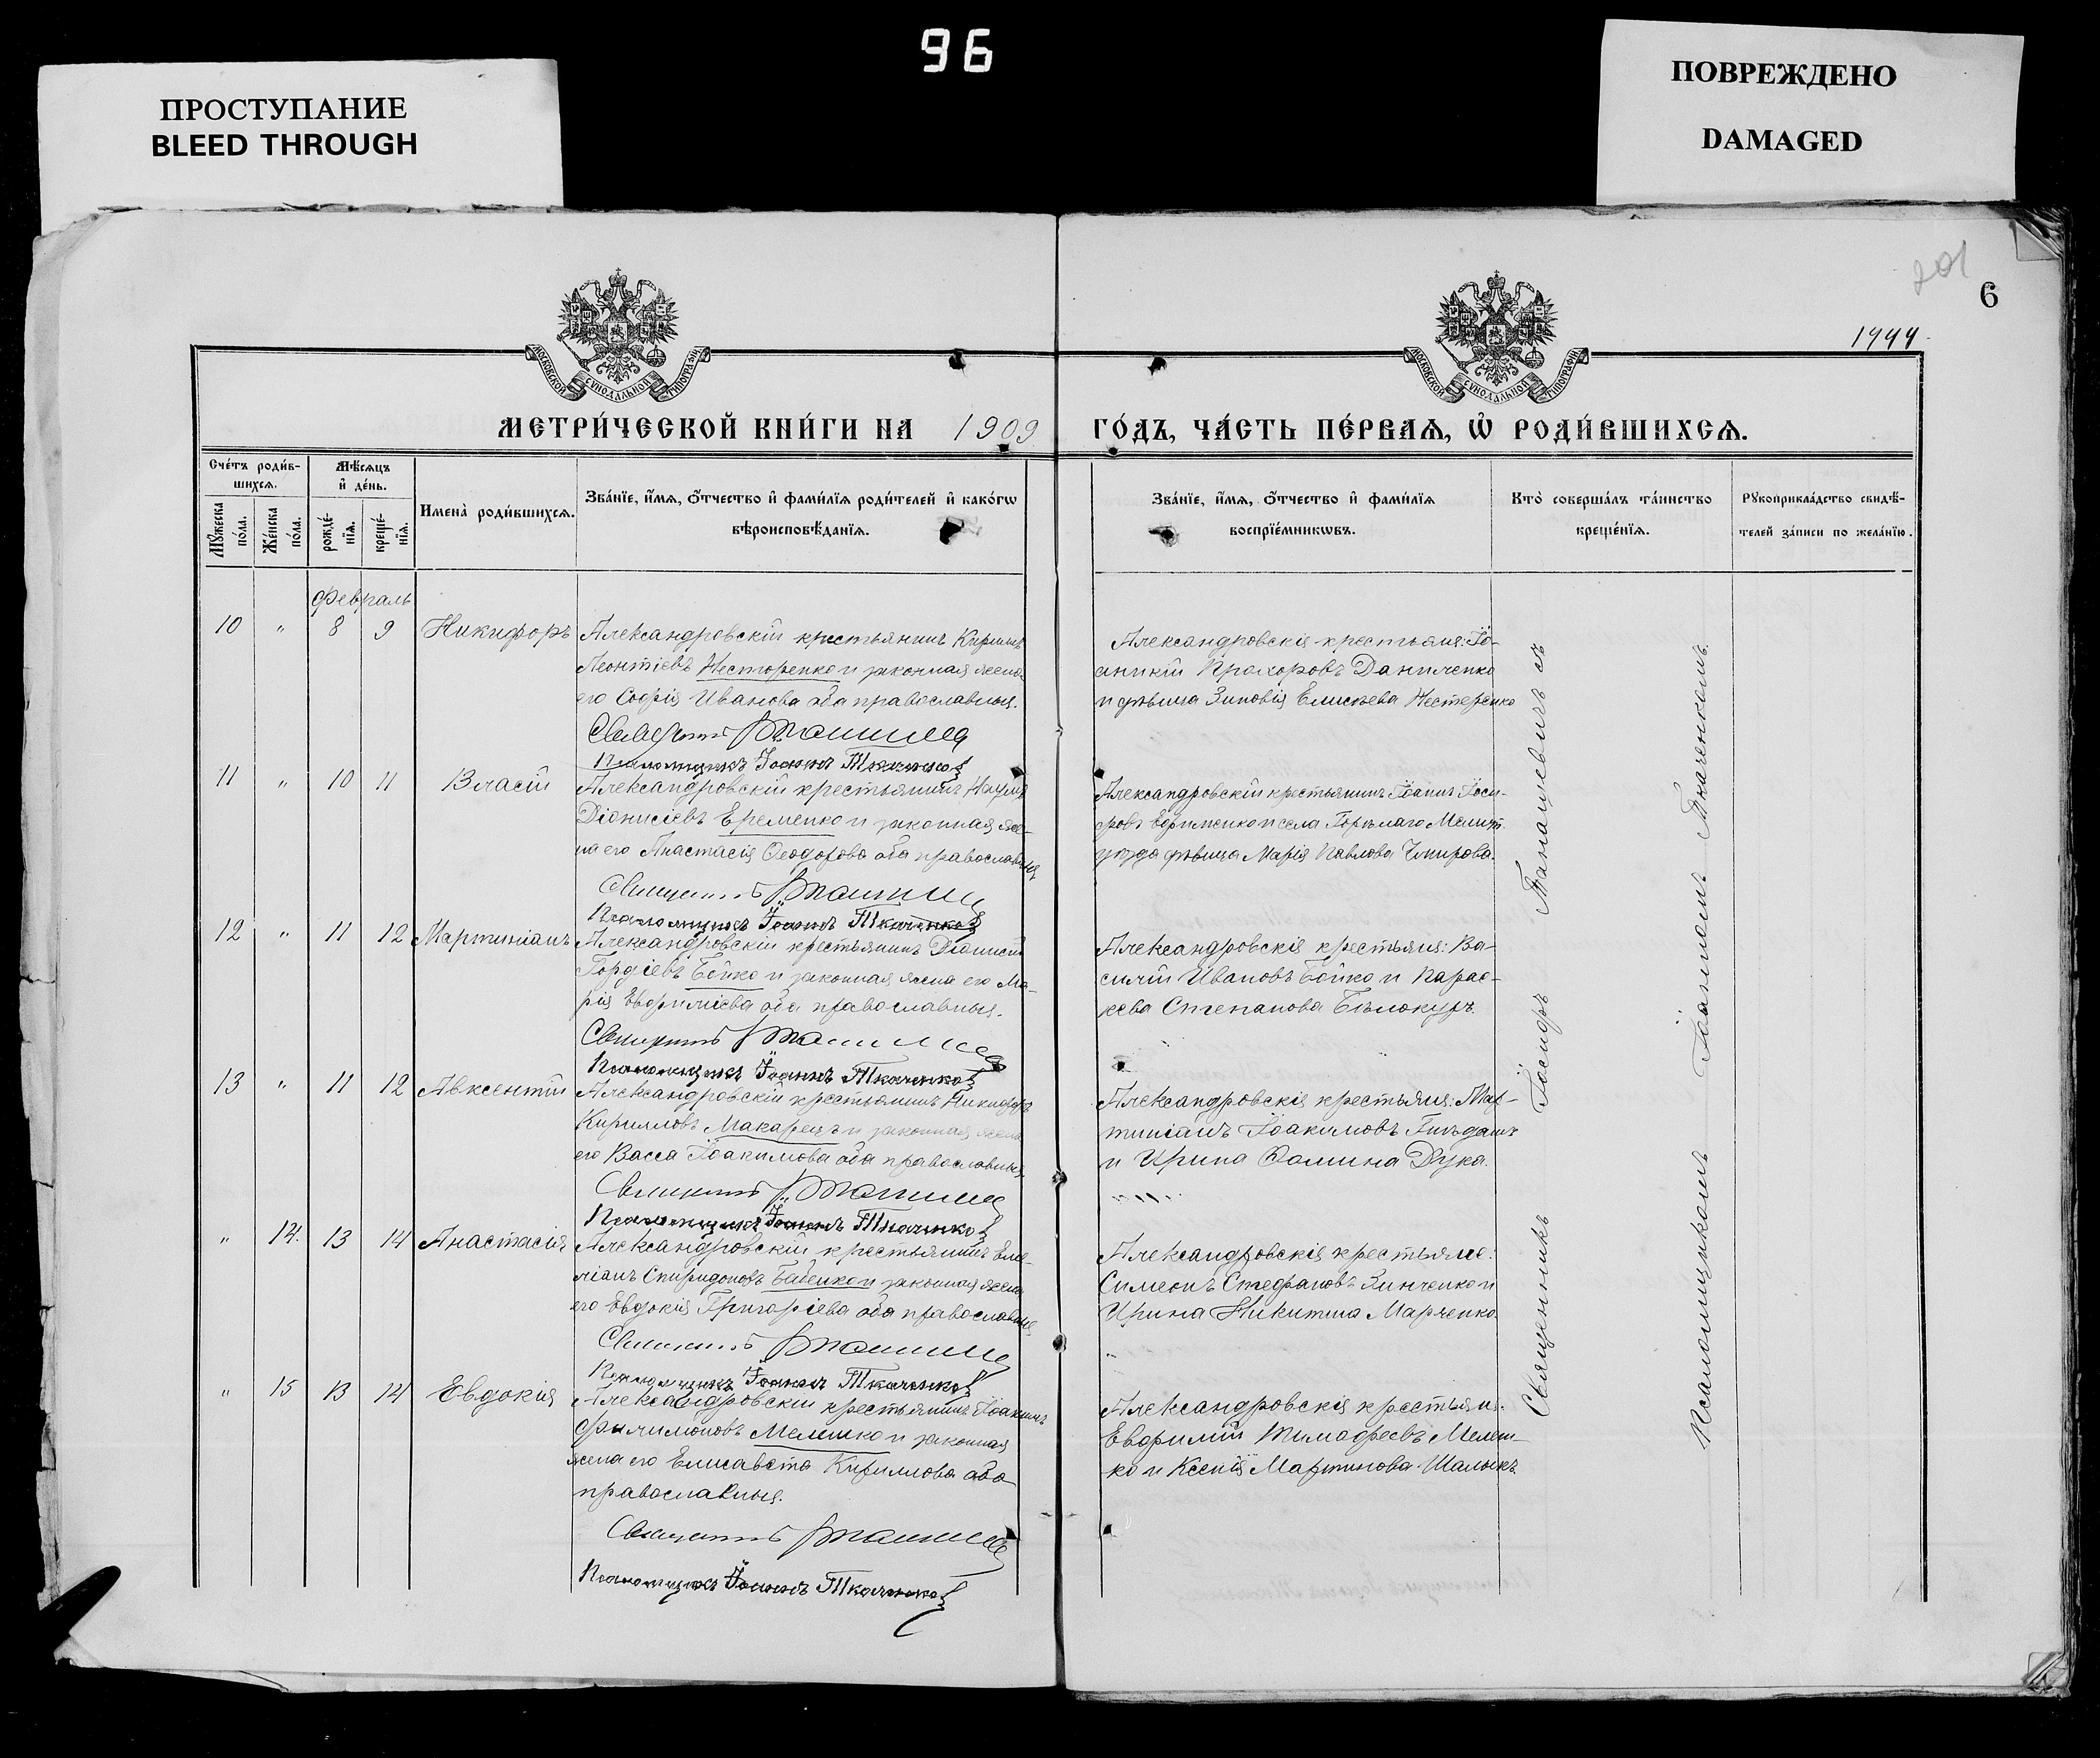 96
ПРОСТУПАНИЕ
BLEED THROUGH
ПОВРЕЖДЕНО
DAMAGED
201
6
1944
МОСКОВСКОЙ СУНОДАЛЬНОЙ ТИПОГРАФІИ
МОСКОВСКОЙ СУНОДАЛЬНОЙ ТИПОГРАФІИ
МЕТРИ́ЧЕСКОЙ КНИ́ГИ НА 1909 ГО́ДЪ, ЧА́СТЬ ПЕ́РВАѦ, Ѡ҆ РОДИ́ВШИХСѦ.
Сче́тъ роди́в-
шихсѧ.
Мꙋ́жеска
по́ла.
Же́нска
по́ла.
Мѣ́сѧцъ
и҆ де́нь.
рожде́-
нїѧ.
креще́-
нїѧ.
Имена̀ роди́вшихсѧ.
Зва́нїе, и҆́мѧ, ѻ҆́тчество и҆ фами́лїѧ роди́телей и҆ како́гѡ
вѣроисповѣ́данїѧ.
Зва́нїе, и҆́мѧ, ѻ҆́тчество и҆ фами́лїѧ
воспрїе́мникѡвъ.
Кто̀ соверша́лъ та́инство
креще́нїѧ.
Рꙋкоприкла́дство свидѣ́-
телей за́писи по жела́нїю.
Февраль
10 " 8 9 Никифоръ
Александровскій крестьянинъ Кириллъ
Леонтіевъ Несторенко и законная жена
его Софія Иванова оба православныя.
Священникъ
Псаломщикъ Іоаннъ Ткаченко
Александровскія крестьяня: Іо-
аникій Прохоровъ Даниленко
и дѣвица Зиновія Елисѣева Нестеренко
11 " 10 11 Власій
Александровскій крестьянинъ Наумъ
Діонисіевъ Еременко и законная же-
на его Анастасія Ѳеодорова оба православныя
Священникъ
Псаломщикъ Іоаннъ Ткаченко
Александровскій крестьянинъ Іоаннъ Іоси-
фовъ Ефименко и села Горѣлаго Мелит.
уѣзда дѣвица Марія Павлова
12 " 11 12 Мартиніанъ
Александровскій крестьянинъ Діонисій
Гордіевъ Бойко и законная жена его Ма-
рія Евфиміева оба православныя.
Священникъ
Псаломщикъ Іоаннъ Ткаченко
Александровскія крестьяня: Ва-
силій Ивановъ Бойко и Парас-
кева Степанова Бѣлокуръ.
13 " 11 12 Авксентій
Александровскій крестьянинъ Никифоръ
Кирилловъ Макарецъ и законная жена
его Васса Іоакимова оба православныя
Священникъ
Псаломщикъ Іоаннъ Ткаченко
Александровскія крестьяня: Мар-
тиніанъ Іоакимовъ
и Ирина Ѳомина Дука.
" 14. 13 14 Анастасія
Александровскій крестьянинъ Еме-
ліанъ Спиридоновъ Бабенко и законная жена
его Евдокія Григоріева оба православныя
Священникъ
Псаломщикъ Іоаннъ Ткаченко
Александровскія крестьяне:
Симеонъ Стефановъ Зинченко и
Ирина Никитина Марченко.
" 15 13 14 Евдокія
Александровскій крестьянинъ Іоакимъ
Филимоновъ Мелешко и законная
жена его Елисавета Кириллова оба
православныя.
Священникъ
Псаломщикъ Іоаннъ Ткаченко
Александровскія крестьяня:
Евфимій Тимофеевъ Мелеш-
ко и Ксенія Мартинова Шалыкъ.
Священникъ Іосифъ Танацевичъ съ
Псаломщикомъ Іоанномъ Ткаченкомъ.